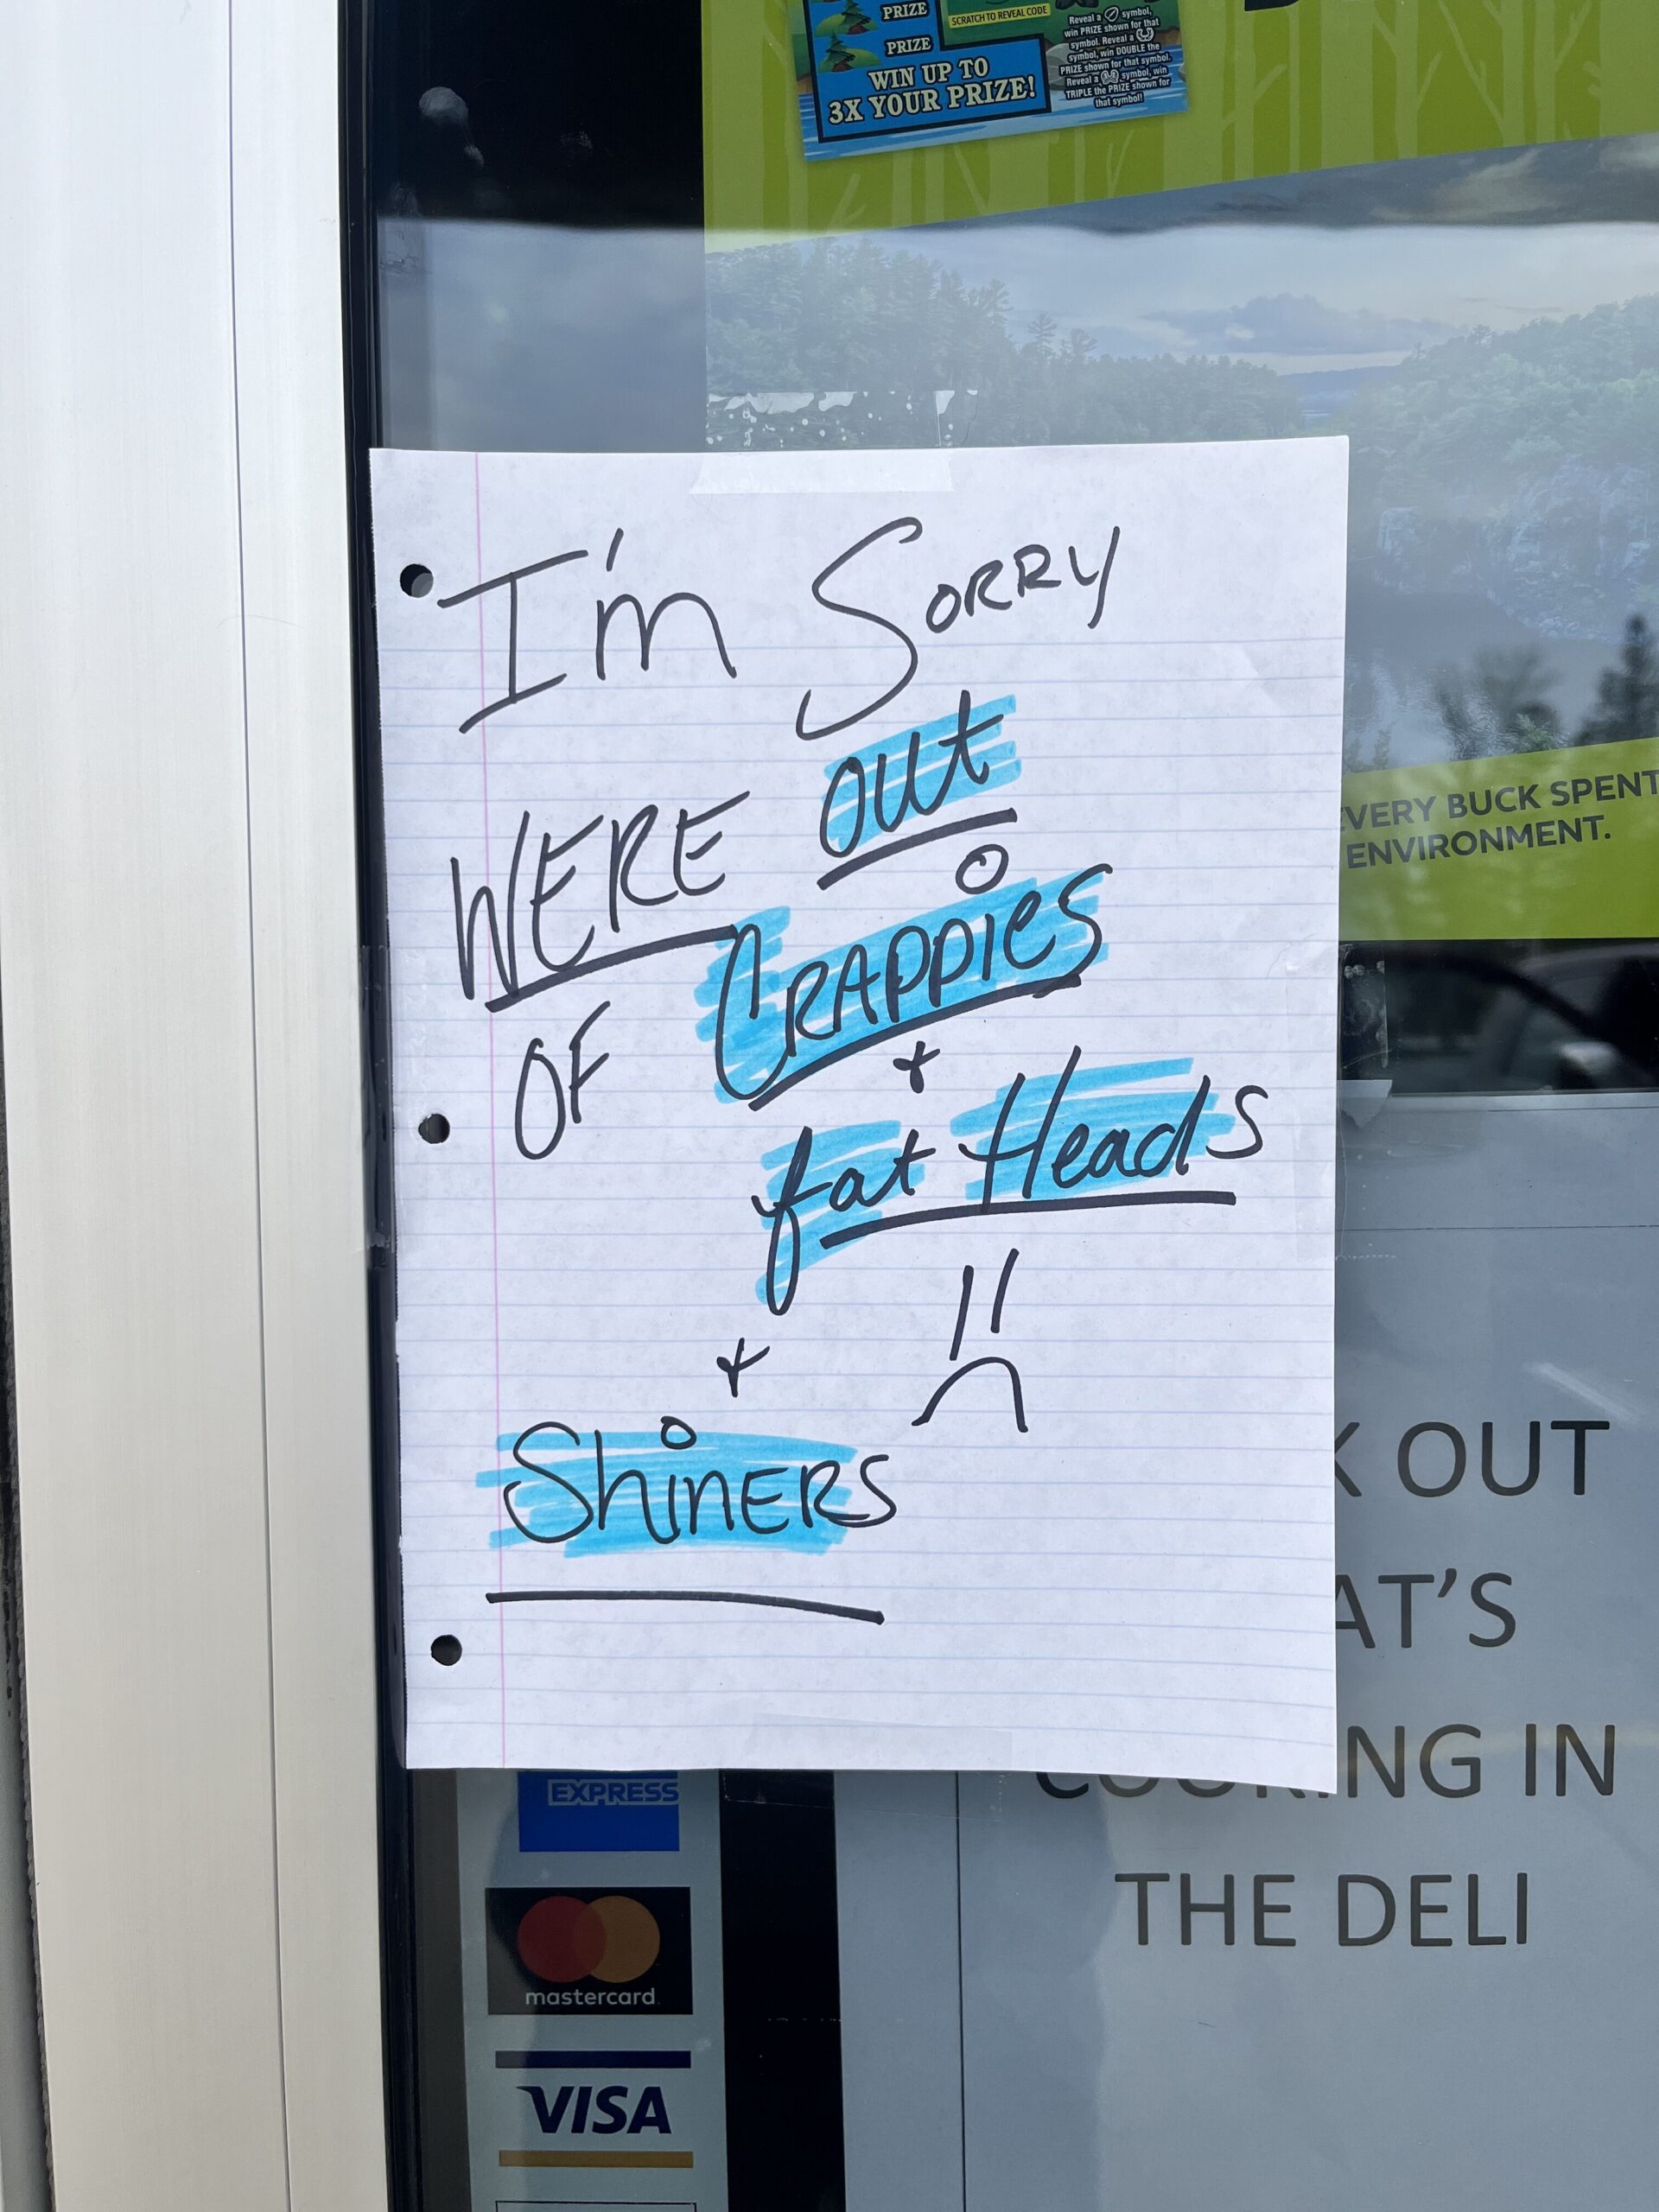 PRIZE
SCRATCH TO REVEAL CODE
PRIZE
WIN UP TO
3X YOUR PRIZE!
Reveal a symbol,
win PRIZE shown for that
symbol. Reveal a
symbol, win DOUBLE the
PRIZE shown for that symbol.
Reveal a symbol, win
TRIPLE the PRIZE shown for
that symbol!
I'm SORRY
WERE out
OF CRAPPIES
+
fat Heads
+
ShinERS
VERY BUCK SPENT
ENVIRONMENT.
K OUT
AT'S
COOKING IN
THE DELI
EXPRESS
mastercard
VISA